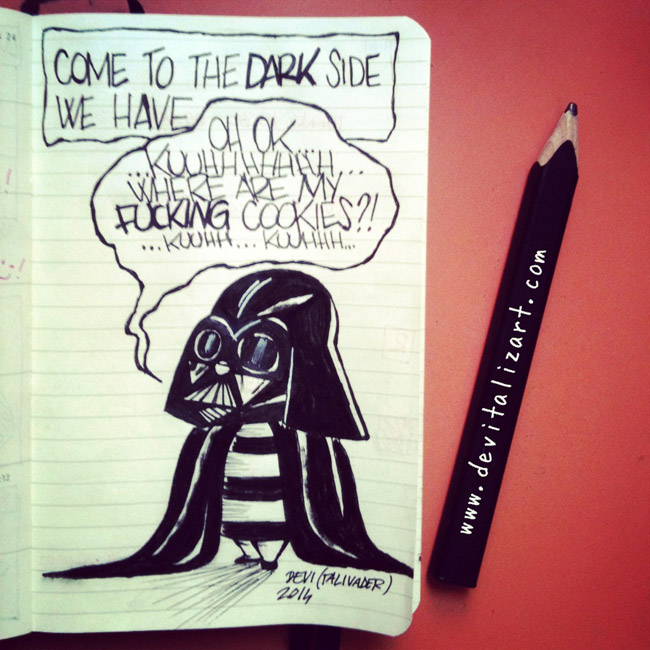 COME TO THE DARK SIDE
WE HAVE
OH OK
...KUUHHHHHHH...
WHERE ARE MY
FUCKING COOKIES?!
...KUUHH...KUUHHH...
DEVI(TALIVADER)
2014
www.devitalizart.com